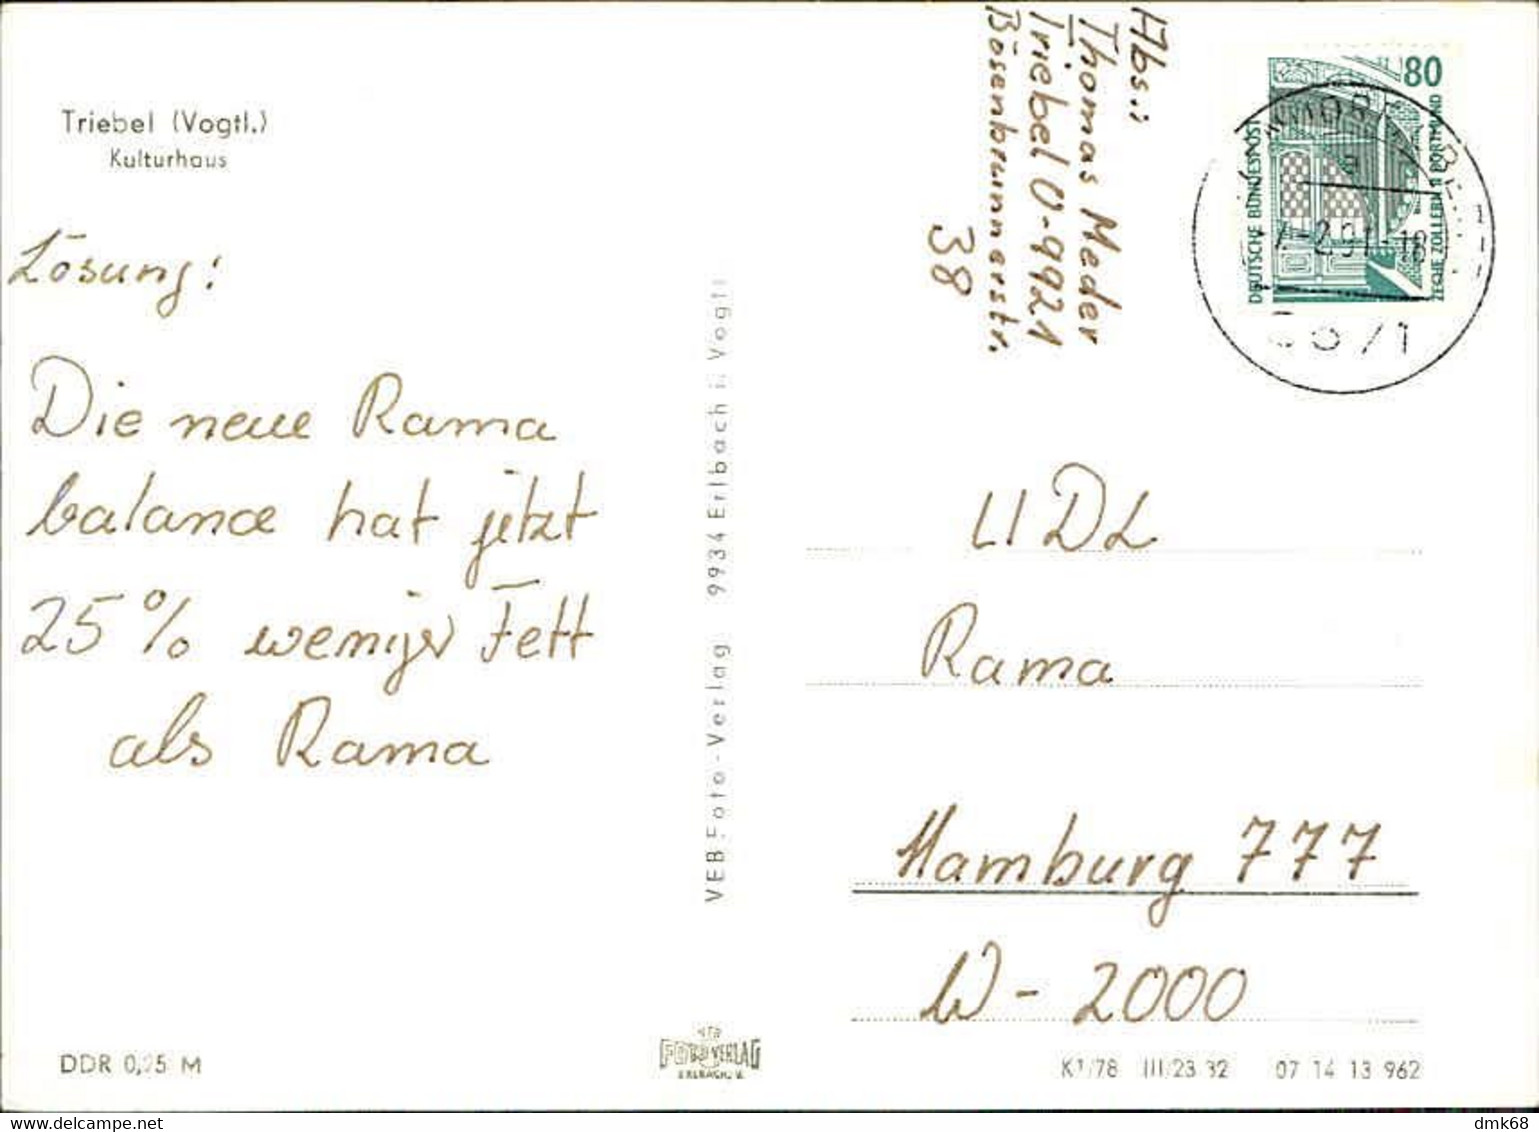 Triebel (Vogtl.)
Kulturhaus
Lösung:
Die neue Rama
balance hat jetzt
25% weniger Fett
als Rama
DDR 0,25 M
VEB Foto-Verlag 9934 Erlbach i. Vogtl
FOTO VERLAG
Abs.:
Thomas Meder
Triebel O-9921
Bösenbrunnerstr.
38
80
DEUTSCHE BUNDESPOST
ZECHE ZOLLERN II DORTMUND
LIDL
Rama
Hamburg 777
W-2000
K1/78 III/23 32 07 14 13 962
dmk68